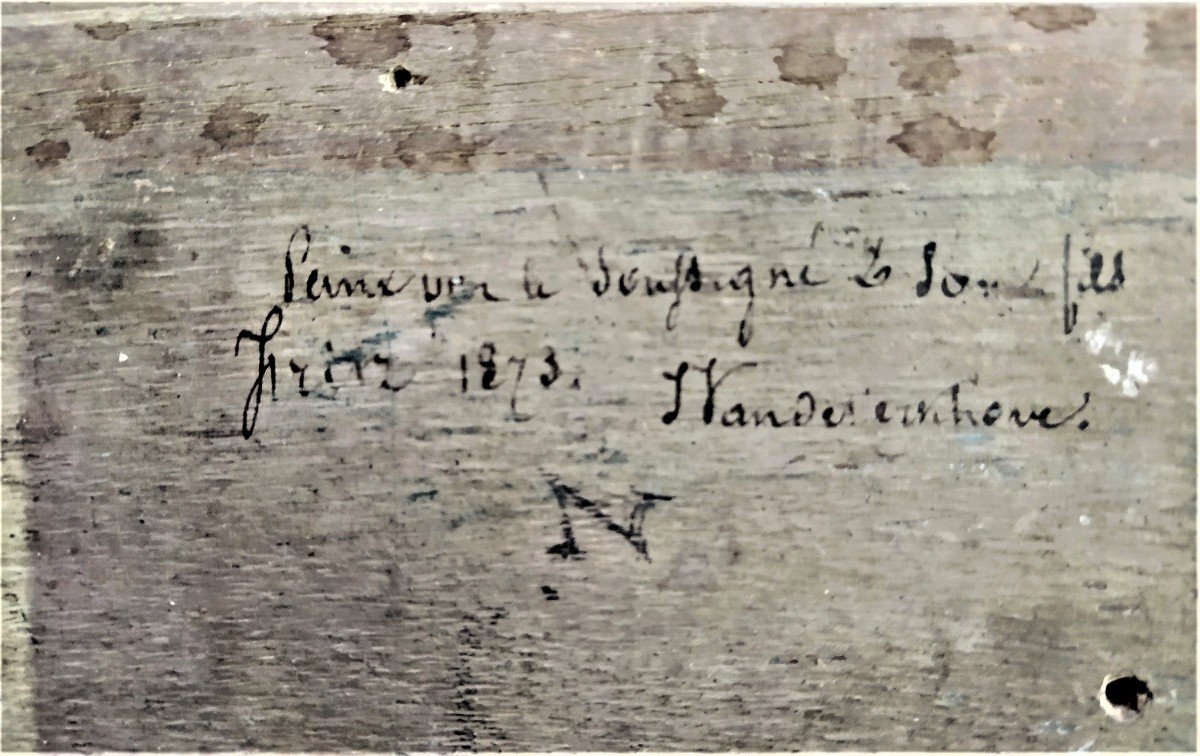 Peint par le Soussigné & Son fils
Fritz 1873. Vanderl'enhove.
N